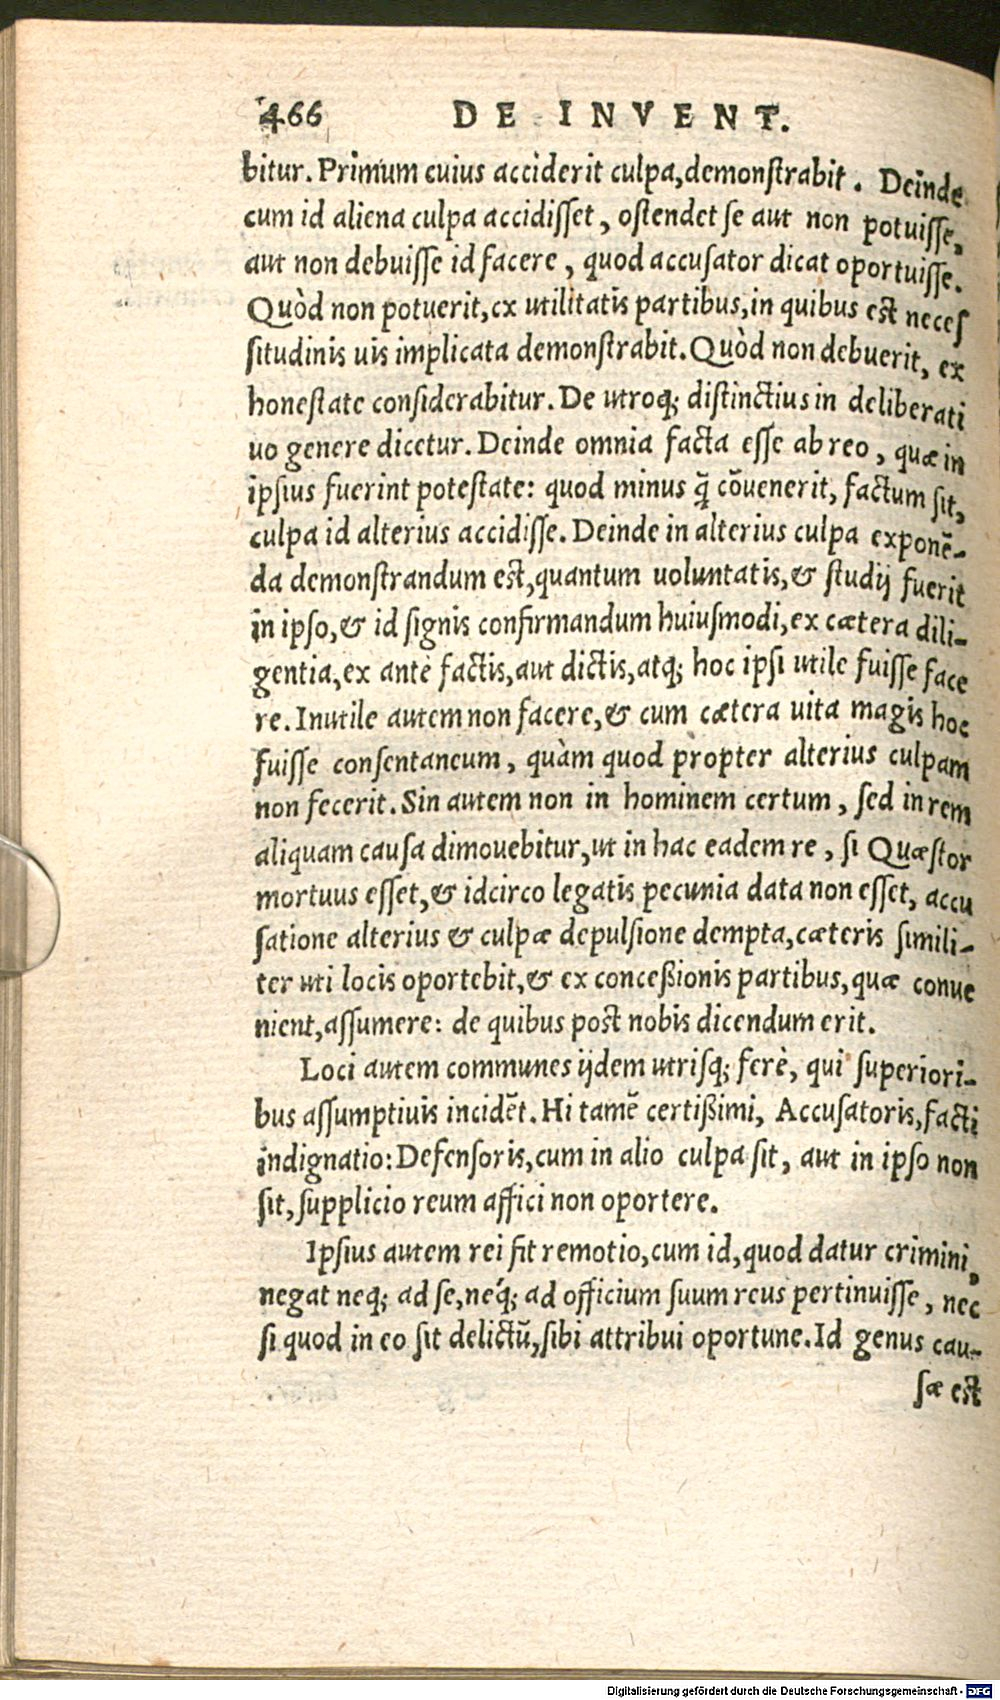 466 DE INVENT.
bitur. Primum cuius acciderit culpa, demonſtrabit. Deinde
cum id aliena culpa accidiſſet, oſtendet ſe aut non potuiſſe,
aut non debuiſſe id facere, quod accuſator dicat oportuiſſe.
Quòd non potuerit, ex utilitatis partibus, in quibus eſt neceſ
ſitudinis uis implicata demonſtrabit. Quòd non debuerit, ex
honeſtate conſiderabitur. De utroq; diſtinctius in deliberati
uo genere dicetur. Deinde omnia facta eſſe ab reo, quæ in
ipſius fuerint poteſtate: quod minus q̃ cõuenerit, factum ſit,
culpa id alterius accidiſſe. Deinde in alterius culpa exponẽ-
da demonſtrandum eſt, quantum uoluntatis, & ſtudij fuerit
in ipſo, & id ſignis confirmandum huiuſmodi, ex cætera dili-
gentia, ex ante factis, aut dictis, atq; hoc ipſi utile fuiſſe face
re. Inutile autem non facere, & cum cætera uita magis hoc
fuiſſe conſentaneum, quàm quod propter alterius culpam
non fecerit. Sin autem non in hominem certum, ſed in rem
aliquam cauſa dimouebitur, ut in hac eadem re, ſi Quæſtor
mortuus eſſet, & idcirco legatis pecunia data non eſſet, accu
ſatione alterius & culpæ depulſione dempta, cæteris ſimili-
ter uti locis oportebit, & ex conceßionis partibus, quæ conue
nient, aſſumere: de quibus poſt nobis dicendum erit.
Loci autem communes ijdem utriſq; ferè, qui ſuperiori-
bus aſſumptiuis incidẽt. Hi tamẽ certißimi, Accuſatoris, facti
indignatio: Defenſoris, cum in alio culpa ſit, aut in ipſo non
ſit, ſupplicio reum affici non oportere.
Ipſius autem rei fit remotio, cum id, quod datur crimini,
negat neq; ad ſe, néq; ad officium ſuum reus pertinuiſſe, nec
ſi quod in eo ſit delictũ, ſibi attribui oportune. Id genus cau-
ſæ eſt
Digitalisierung gefördert durch die Deutsche Forschungsgemeinschaft - DFG